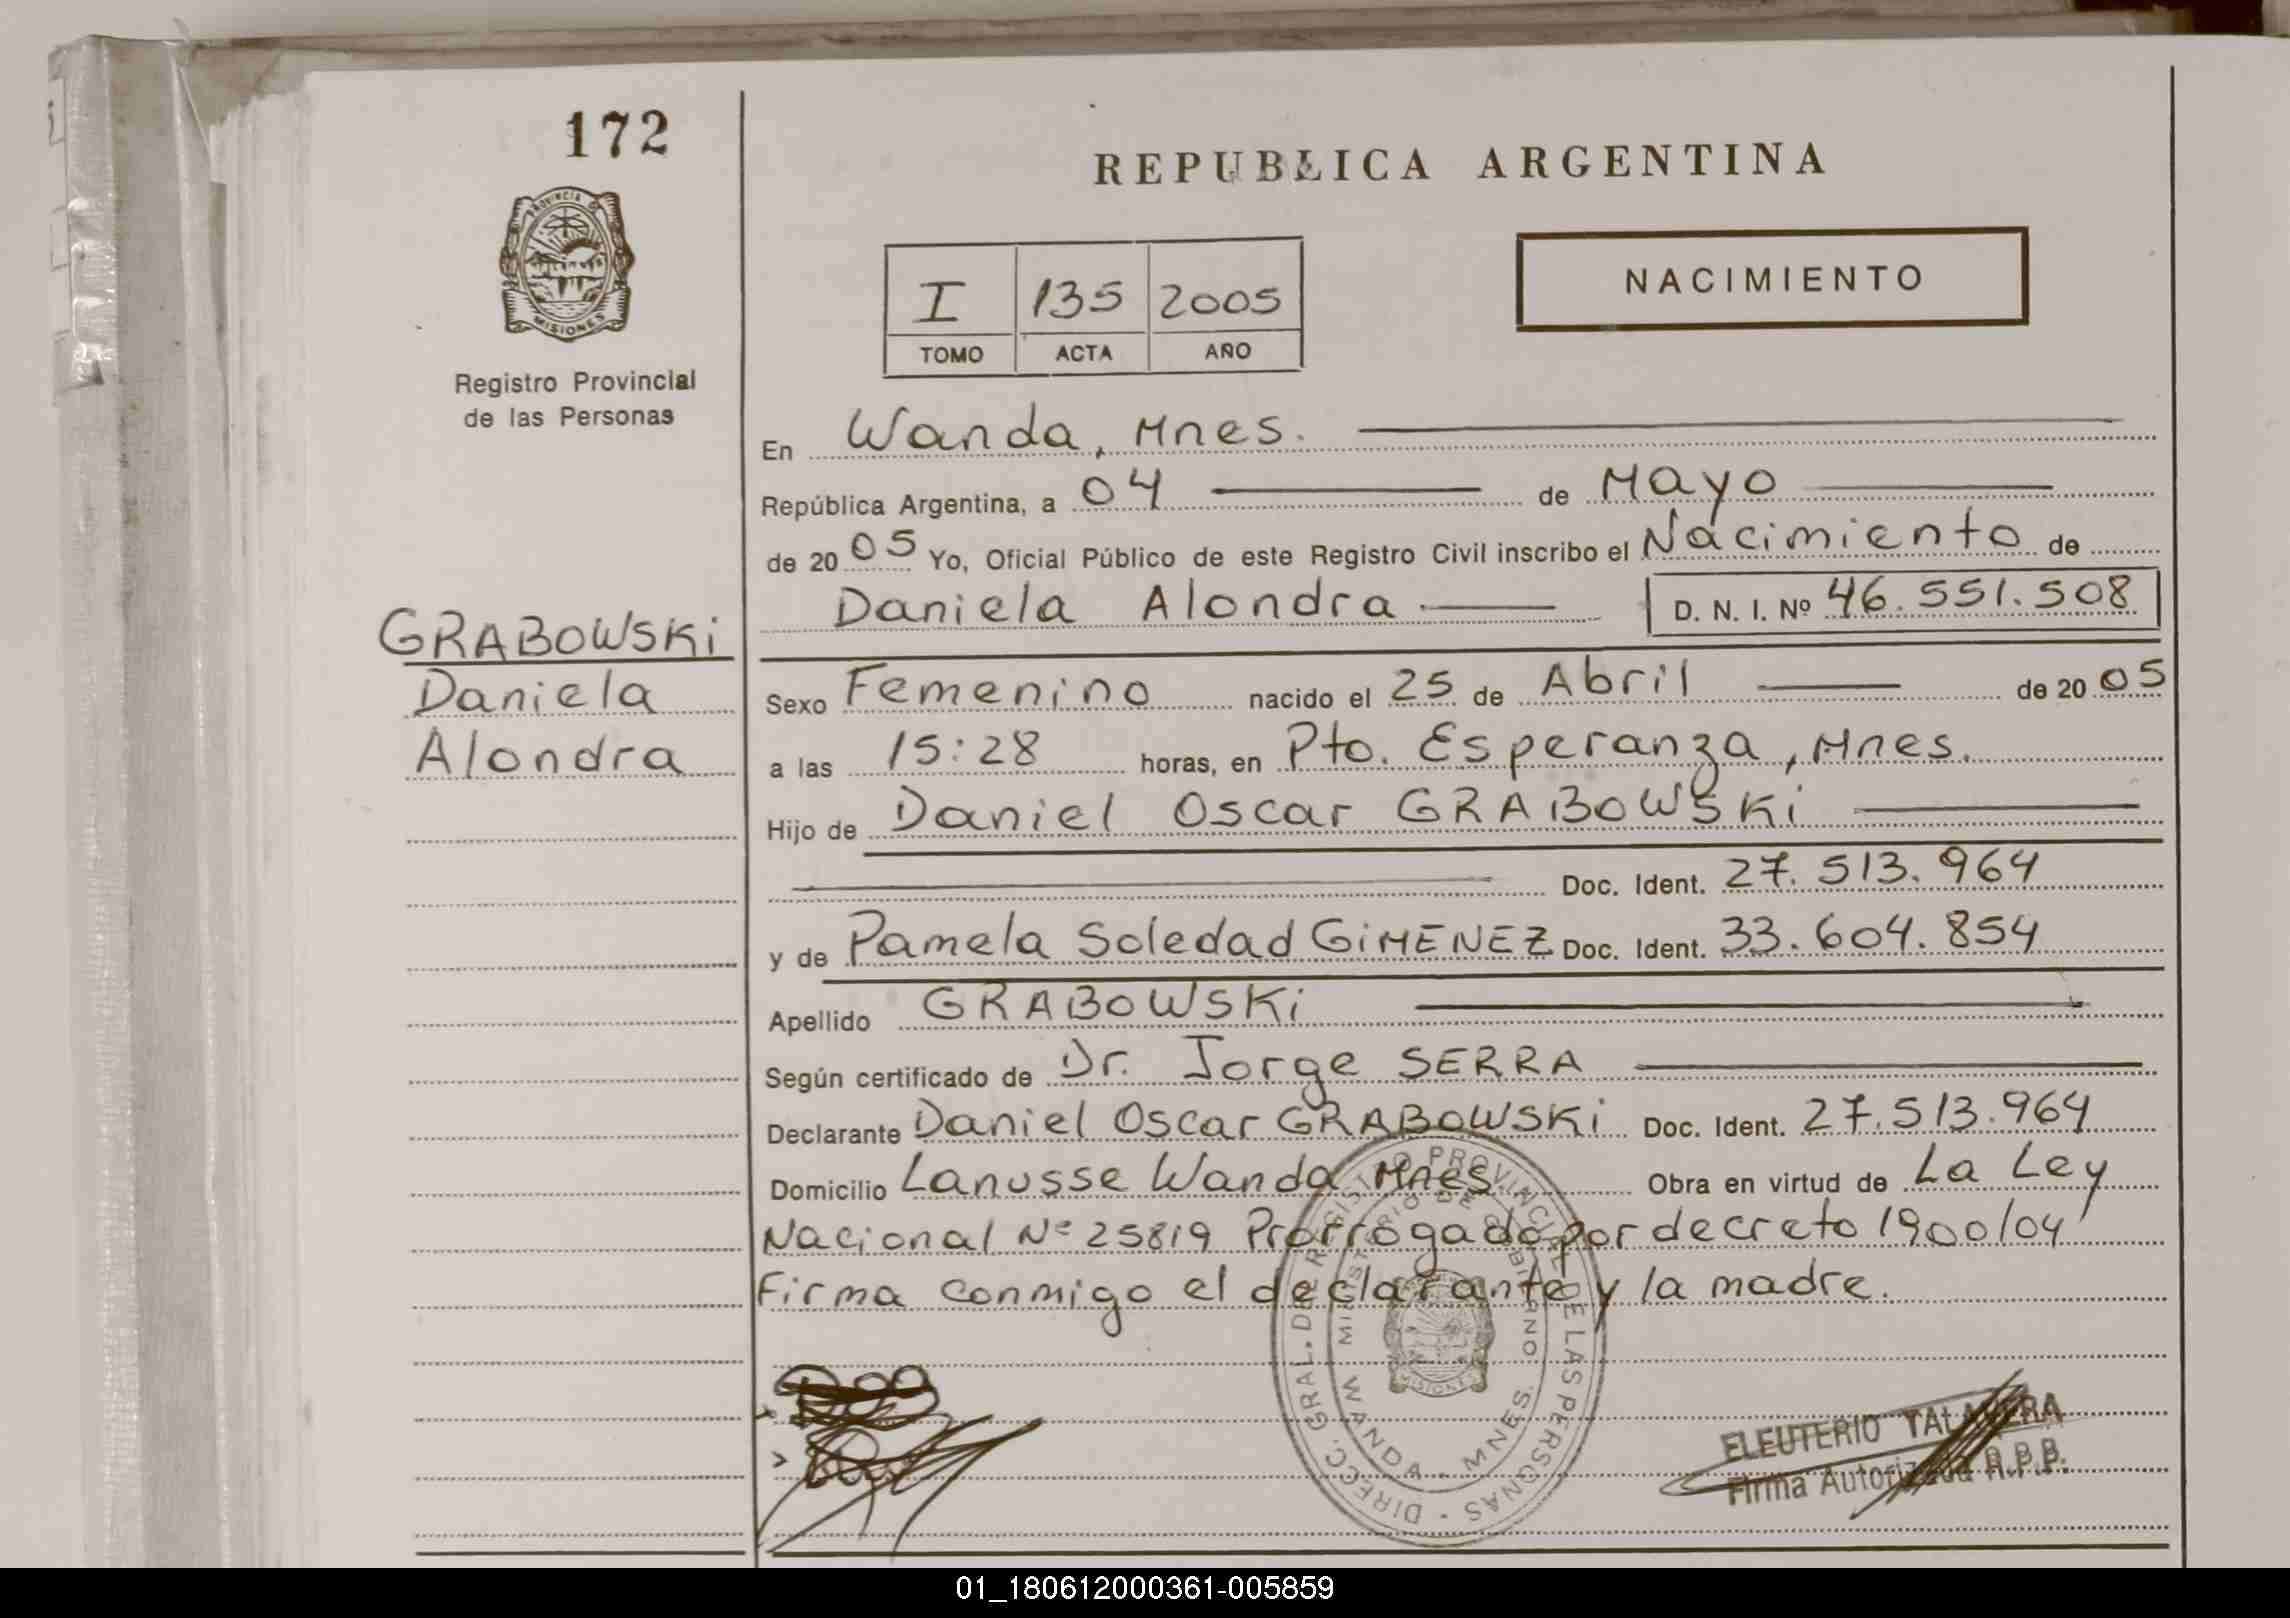 172
REPUBLICA ARGENTINA
PROVINCIA D
MISIONES
Registro Provincial
de las Personas
NACIMIENTO
I 135 2005
TOMO ACTA AÑO
En Wanda, Mnes.
República Argentina, a 04 de Mayo
de 2005 Yo, Oficial Público de este Registro Civil inscribo el Nacimiento de
Daniela Alondra D. N. I. Nº 46.551.508
GRABOWSKi
Daniela
Alondra
Sexo Femenino nacido el 25 de Abril de 2005
a las 15:28 horas, en Pto. Esperanza, Mnes.
Hijo de Daniel Oscar GRABOWSKi
Doc. Ident. 27.513.964
y de Pamela Soledad GiMENEZ Doc. Ident. 33.604.854
Apellido GRABOWSKi
Según certificado de Dr. Jorge SERRA
Declarante Daniel Oscar GRABOWSKi Doc. Ident. 27.513.964
Domicilio Lanusse Wanda Mnes. Obra en virtud de La Ley
Nacional Nº 25819 Prorrogado por decreto 1900/04
Firma conmigo el declarante y la madre.
DIRECC. GRAL. DE REGISTRO PROVINCIAL DE LAS PERSONAS
MINISTERIO DE GOBIERNO
WANDA - MNES.
MISIONES
ELEUTERIO TALAVERA
Firma Autorizada R.P.P.
01_180612000361-005859